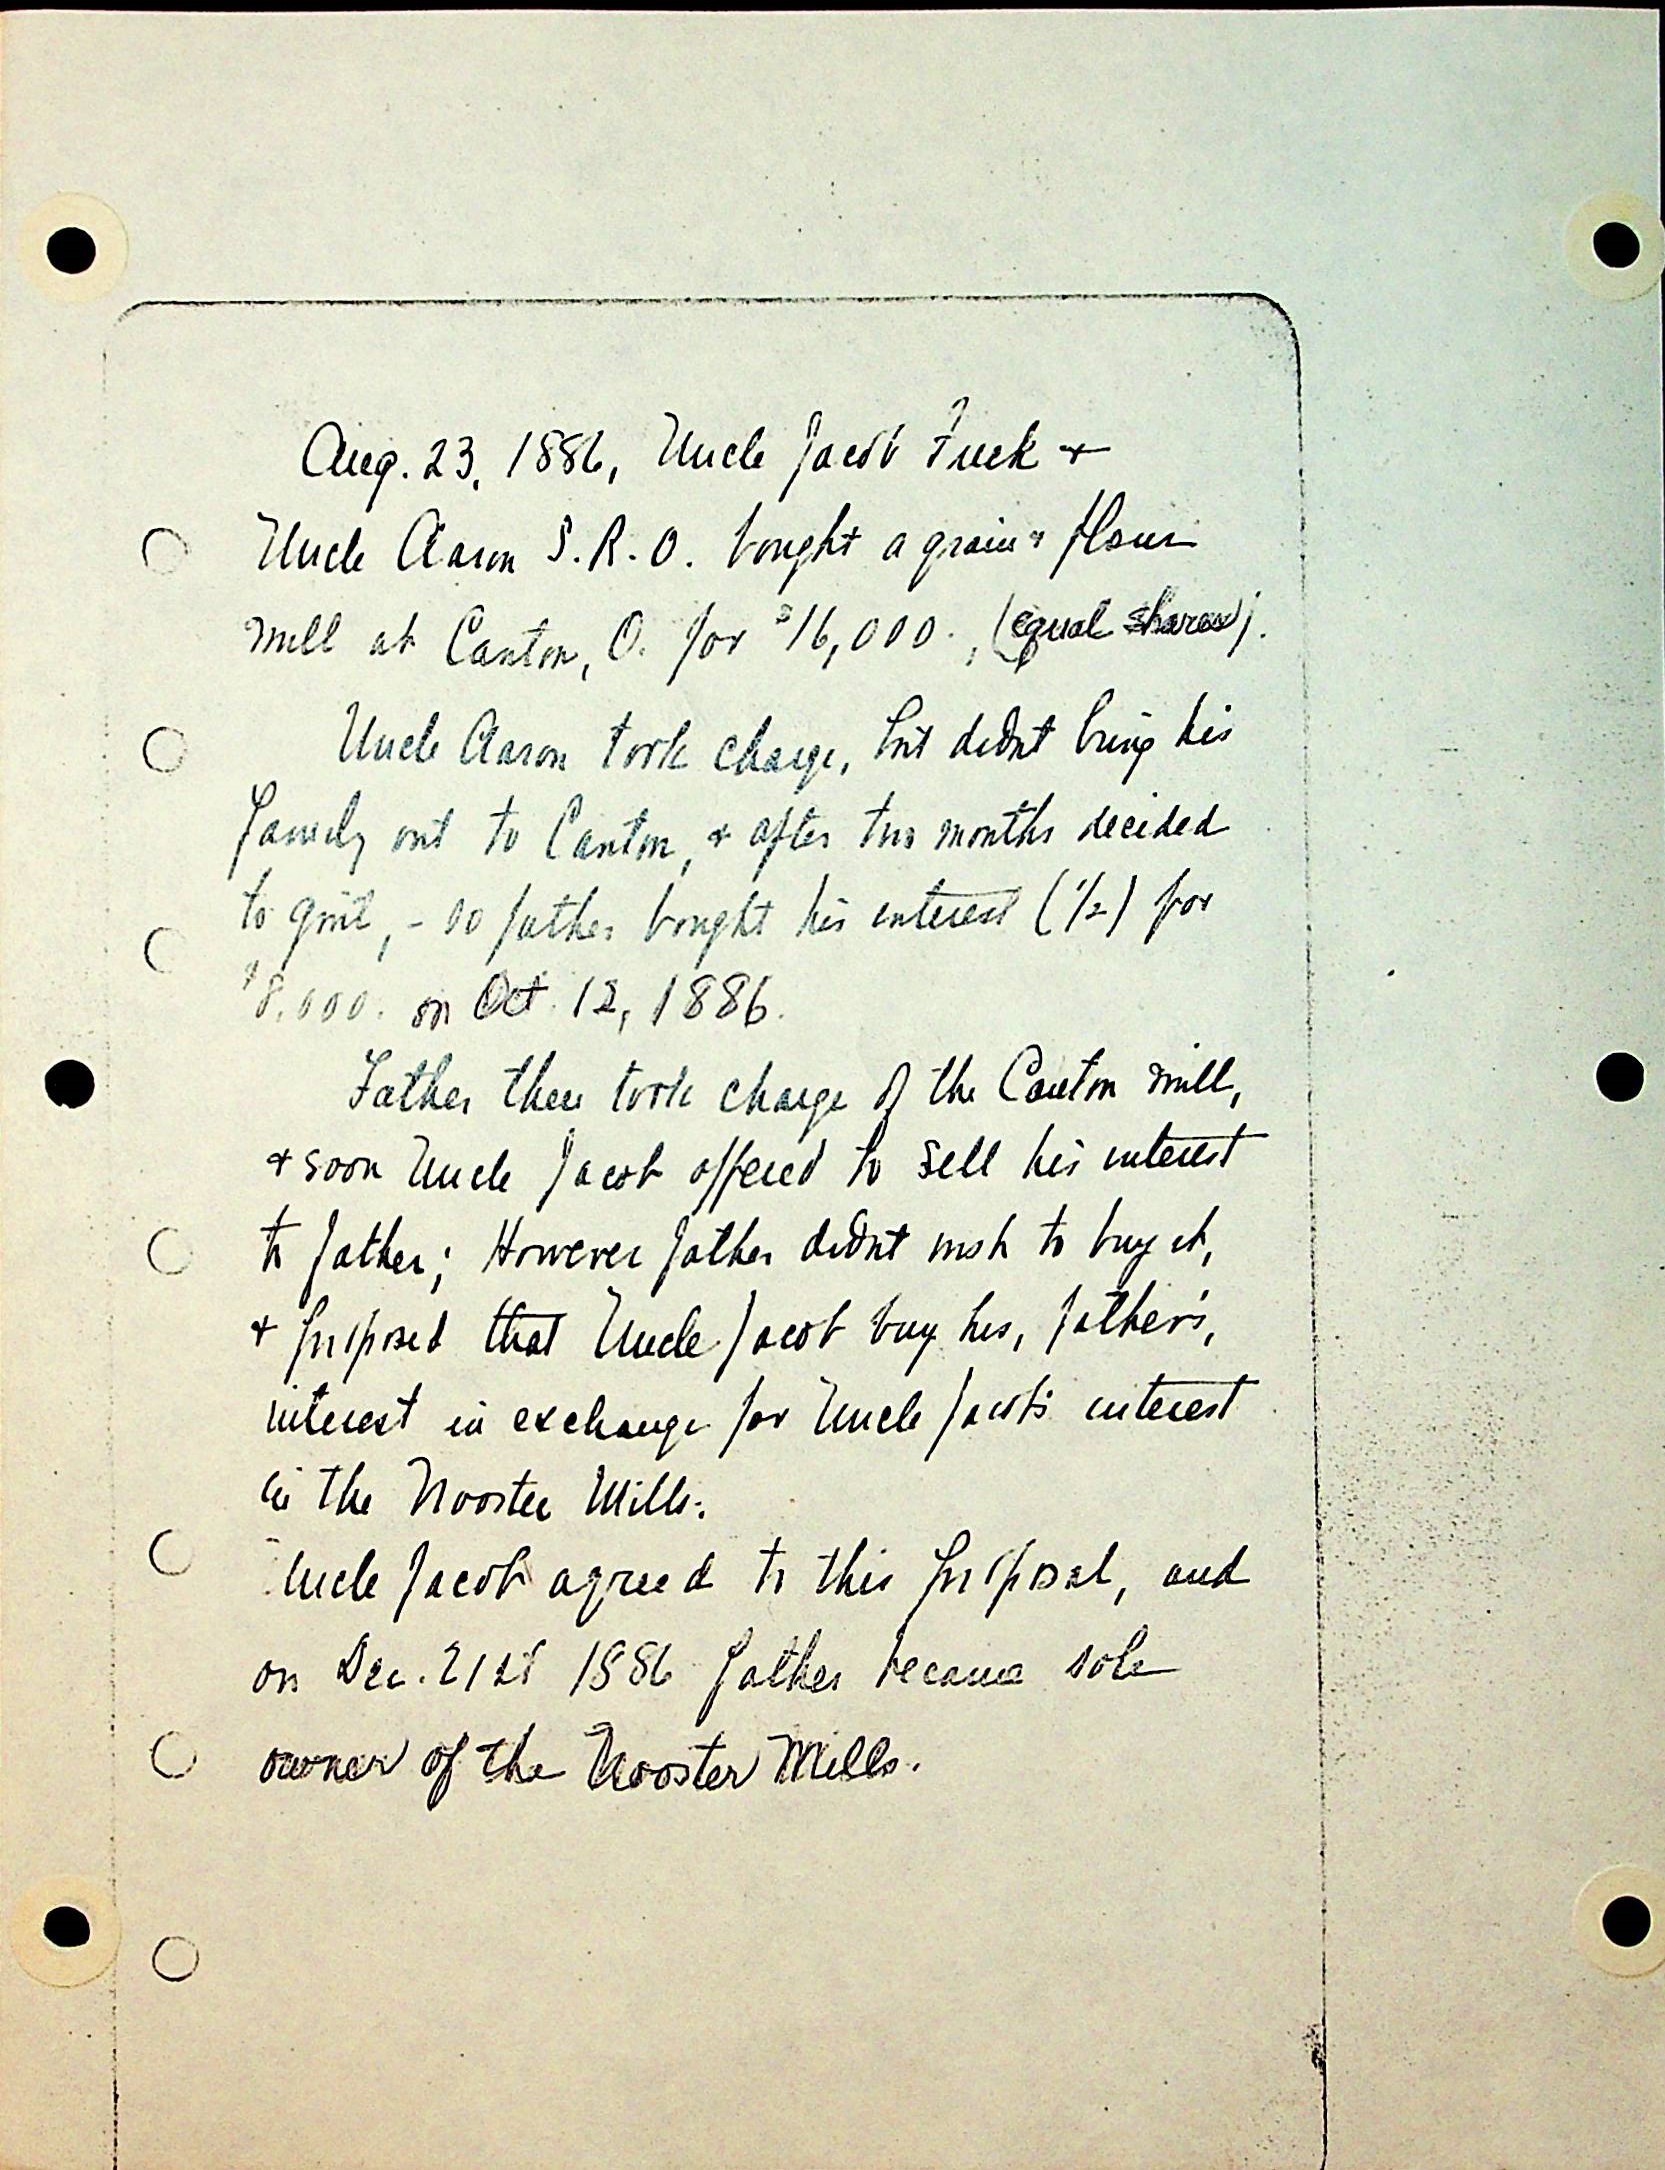 Aug. 23, 1886, Uncle Jacob Fuck +
Uncle Aaron S.R.O. bought a grain + flour
mill at Canton, O. for $16,000. , (equal shares).
Uncle Aaron took charge, but didnt bring his
family out to Canton, + after two months decided
to quit, - so father bought his interest (1/2) for
$8,000. on Oct. 12, 1886.
Father then took charge of the Canton mill,
+ soon Uncle Jacob offered to sell his interest
to father; However father didnt wish to buy it,
+ proposed that Uncle Jacob buy his, father's,
interest in exchange for Uncle Jacob's interest
in the Wooster Mills.
Uncle Jacob agreed to this proposal, and
on Dec. 21st 1886 father became sole
owner of the Wooster Mills.